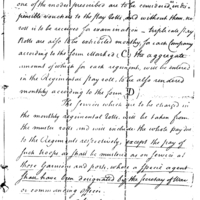 one of the enclosed prescribed are to be considered indis-
pensible vouchers to the pay Rolls, and without them, no
roll is to be received for examination - duplicate pay
Rolls are also to be exhibited monthly for each Company
according to the form marked C; the aggregate
amount of which for each regiment, will be entered
in the Regimental pay roll, to be also rendered
monthly according to the form D;
The forms which are to be charged in
the monthly regimental Rolls, will be taken from
the muster rolls and will exclude the whole pay due
to the Regiment respectively, except the pay of
such troops as shall be mustered as on service at
those Garrisons and posts, where a special agent
shall have been designated by the Secretary of War
or commanding officer.